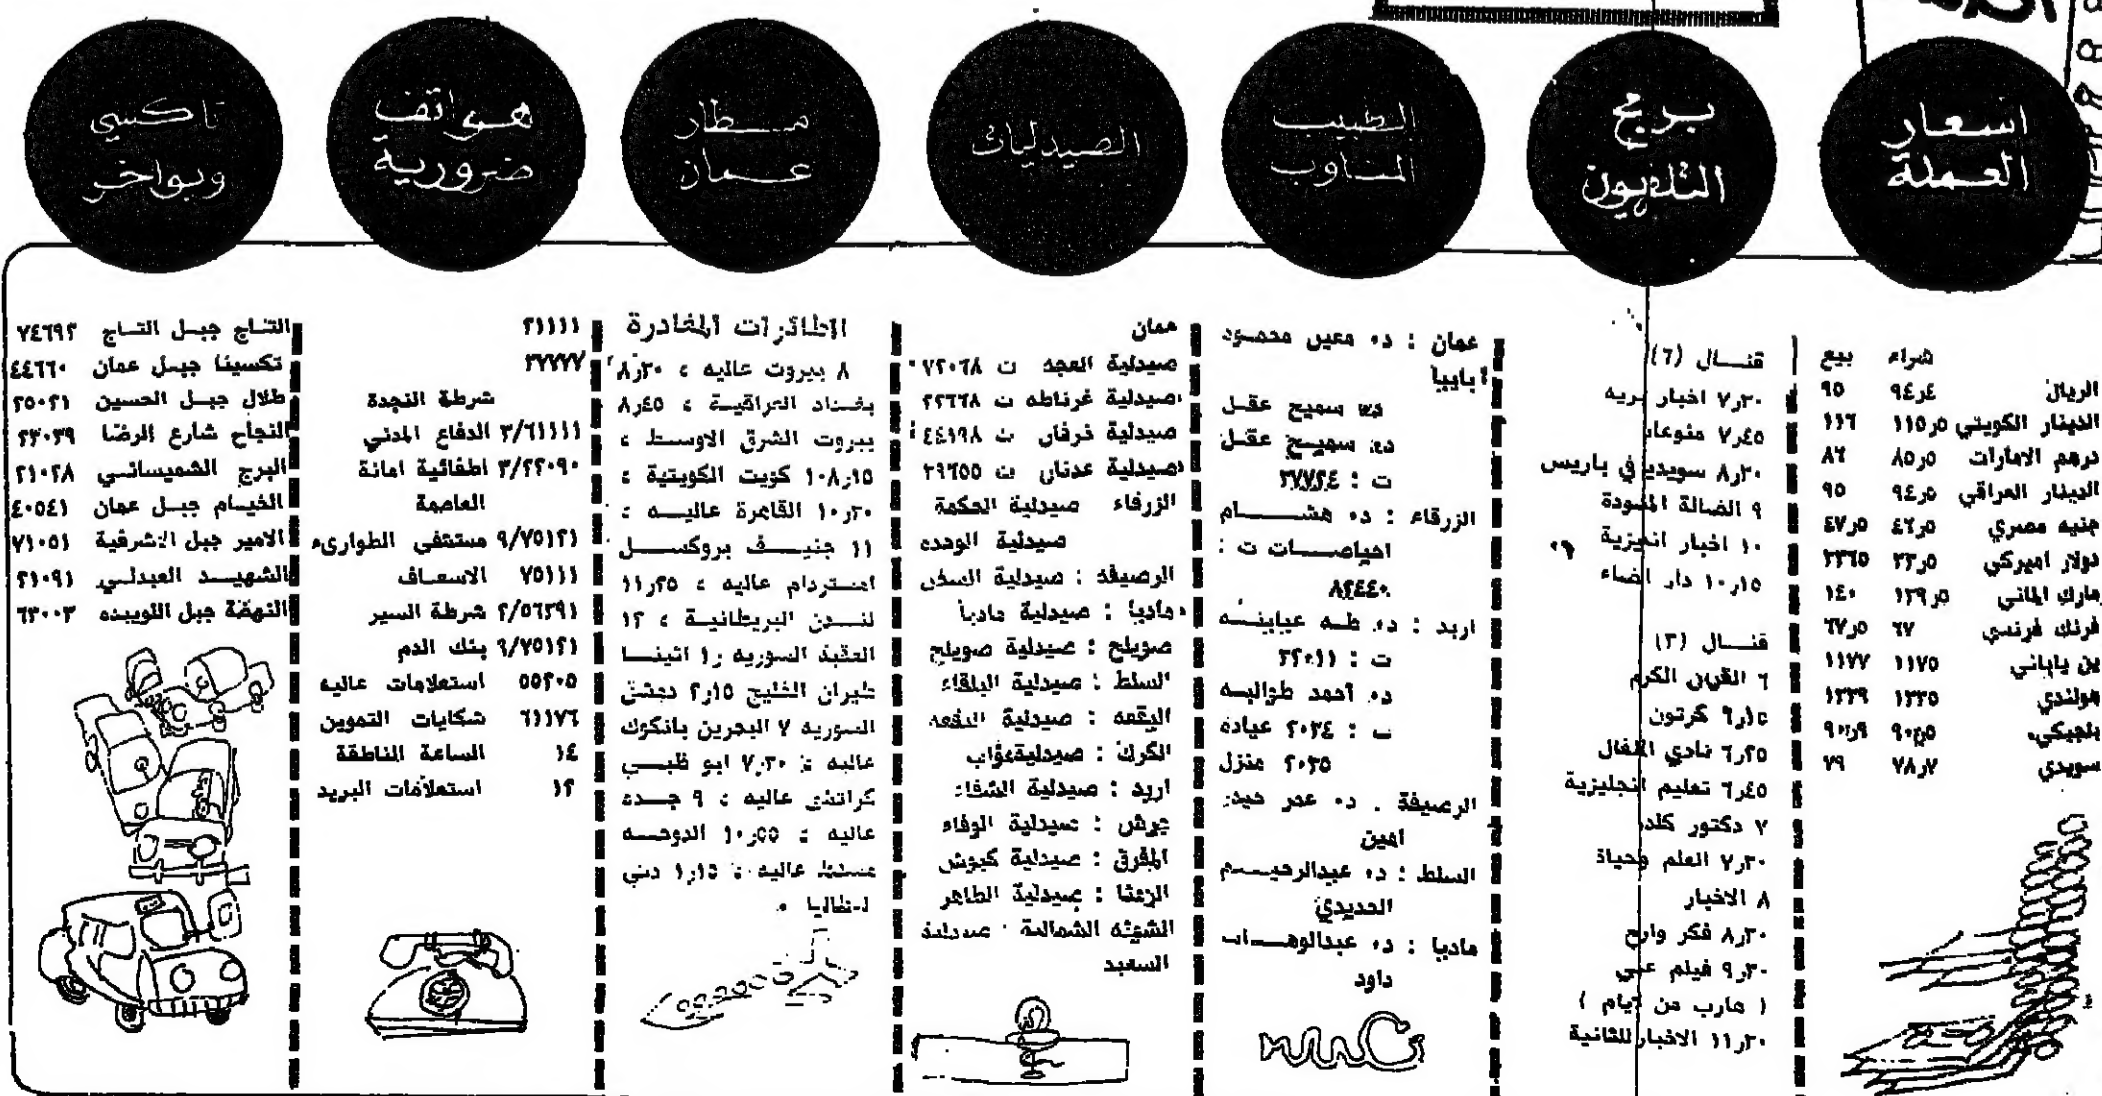 اسعار
العملة
شراء بيع
الريال ٤ر٩٤ ٩٥
الدينار الكويتي ٥ر١١٥ ١١٦
درهم الامارات ٥ر٨٥ ٨٦
الدينار العراقي ٥ر٩٤ ٩٥
جنيه مصري ٥ر٤٦ ٥ر٤٧
دولار اميركي ٥ر٣٣ ٣٣٦٥
مارك الماني ٥ر١٣٩ ١٤٠
فرنك فرنسي ٦٧ ٥ر٦٧
ين ياباني ١١٧٥ ١١٧٧
هولندي ١٢٣٥ ١٢٣٩
بلجيكي
سويدي ٧ر٧٨ ٧٩
برمج
التلفزيون
قنـــال (٦)
٣٠ر٧ اخبار
٤٥ر٧ منوعات
٣٠ر٨ سويدي في باريس
٩ الضالة المنشودة
١٠ اخبار
١٥ر١٠ دار القضاء
قنـــال (٣)
٦ القران الكريم
١٥ر٦ كرتون
٢٥ر٦ نادي الاطفال
٤٥ر٦ تعليم انجليزية
٧ دكتور
٣٠ر٧ العلم والحياة
٨ الاخبار
٣٠ر٨ فكر واربح
٣٠ر٩ فيلم عربي
( هارب من الايام )
٣٠ر١١ الاخبار الثانية
الطبيب
المناوب
عمان : د. معين محمـود
بابيبا
د. سميح عقـل
د. سميـح عقـل
ت : ٣٧٧٢٤
الزرقاء : د. هشــــام
ت :
٨٢٤٤٠
اربد : د. طـه عبابنـه
ت : ٣٢٠١١
د. أحمد طوالبـه
ت : ٢٠٣٤ عيادة
٢٠٣٥ منزل
الرصيفة . د. عمر
امين
السلط : د. عبدالرحيـم
الحديدي
مادبا : د. عبدالوهـاب
داود
الصيدليات
عمان
صيدلية ت ٧٢٠٦٨
صيدلية غرناطه ت ٢٢٦٦٨
صيدلية ت ٤٤١٩٨
صيدلية عدنان ت ٣٩٦٥٥
الزرقاء صيدلية الحكمة
صيدلية الوحده
الرصيفه : صيدلية
مادبا : صيدلية مادبا
صويلح : صيدلية صويلح
السلط : صيدلية البلقاء
البقعه : صيدلية البقعه
الكرك : صيدلية مؤاب
اربد : صيدلية الشفاء
جرش : صيدلية الوفاء
المفرق : صيدلية كيوش
الرمثا : صيدلية الطاهر
الشونه الشمالية : صيدلية
السعيد
مـطار
عـمان
الطائرات المغادرة
٨ بيروت عاليه ، ٣٠ر٨
بغـداد العراقيـة ، ٤٥ر٨
بيروت الشرق الاوسـط ،
كويت الكويتية ،
٣٠ر١٠ القاهرة عاليـه ،
١١ جنيـف بروكسـل
امستردام عاليه ، ٢٥ر١١
لنـدن البريطانيـة ، ١٢
العقبة السوريه ١ر اثينـا
طيران الخليج ١٥ر٢ دمشق
السوريه ٧ البحرين بانكوك
عاليه ، ٧,٣٠ ابو ظبـي
كراتشي عاليه ، ٩ جـدة
عاليه ، ٥٥ر١٠ الدوحـه
مسقط عاليه ، ١٥ر١ دبي
هـواتف
ضرورية
٢١١١١
٣٧٧٧٧
شرطة النجدة
٣/٦١١١١ الدفاع المدني
٣/٢٢٠٩٠ اطفائية امانة
العاصمة
٩/٧٥١٢١ مستشفى الطوارىء
٧٥١١١ الاسعـاف
٢/٥٦٣٩١ شرطة السير
٩/٧٥١٢١ بنك الدم
٥٥٢٠٥ استعلامات عاليه
٦١١٧٦ شكايات التموين
١٤ الساعة الناطقة
١٢ استعلامات البريد
تاكسي
وبواخر
التـاج جبـل التـاج ٧٤٦٩٢
تكسينا جبـل عمان ٤٤٦٦٠
طلال جبـل الحسين ٢٥٠٢١
النجاح شارع الرضا ٢٣٠٣٩
البرج الشميسانـي ٢١٠٢٨
الخيـام جبـل عمان ٤٠٥٤١
الامير جبل الاشرفية ٧١٠٥١
الشهيـد العبدلـي ٢١٠٩١
النهضة جبل اللويبده ٦٣٠٠٣